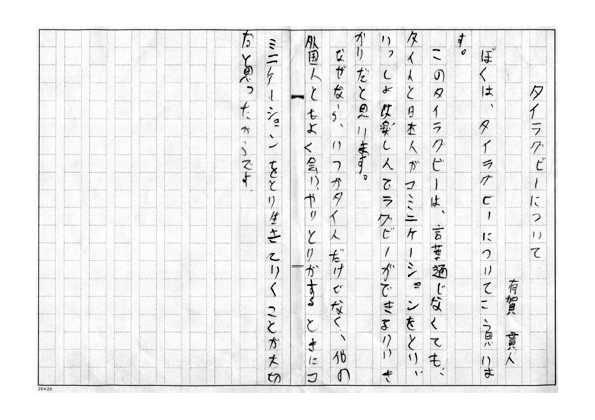 タイラグビーについて
有賀 貫人
ぼくは、タイラグビーについてこう思いま
す。
このタイラグビーは、言葉通じなくても、
タイ人と日本人がコミニケーションをとり、
いっしょに楽しんでラグビーができるいいき
かりだと思います。
なぜなら、いつかタイ人だけでなく、他の
外国人ともよく会い、やりとりがするときにコ
ミニケーションをとり生きていくことが大切
だと思ったからです。
20×20